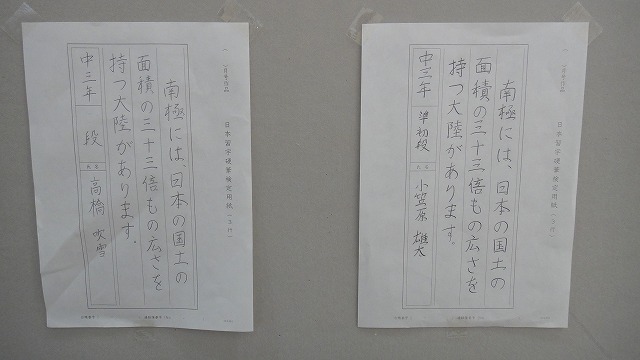 日本習字硬筆検定用紙(3行)
南極には、日本の国土の
面積の三十三倍もの広さを
持つ大陸があります。
中三年 準初段 氏名 小笠原 雄大
日本習字硬筆検定用紙(3行)
南極には、日本の国土の
面積の三十三倍もの広さを
持つ大陸があります。
中三年 段 氏名 高橋 吹雪